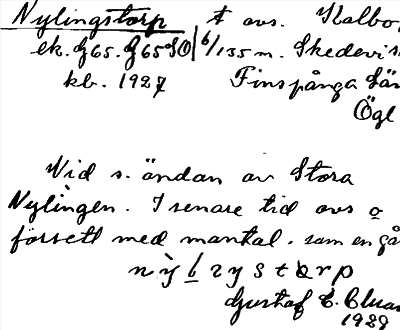 Nylingstorp ‡ avs. Kalbo
ek. G65. G65SO 6/135 m. Skedevi s
kb. 1927 Finspånga län
Ögl
Vid s. ändan av Stora
Nylingen. I senare tid avs o
försett med mantal. som en gå
Gustaf E. Cluas
1928